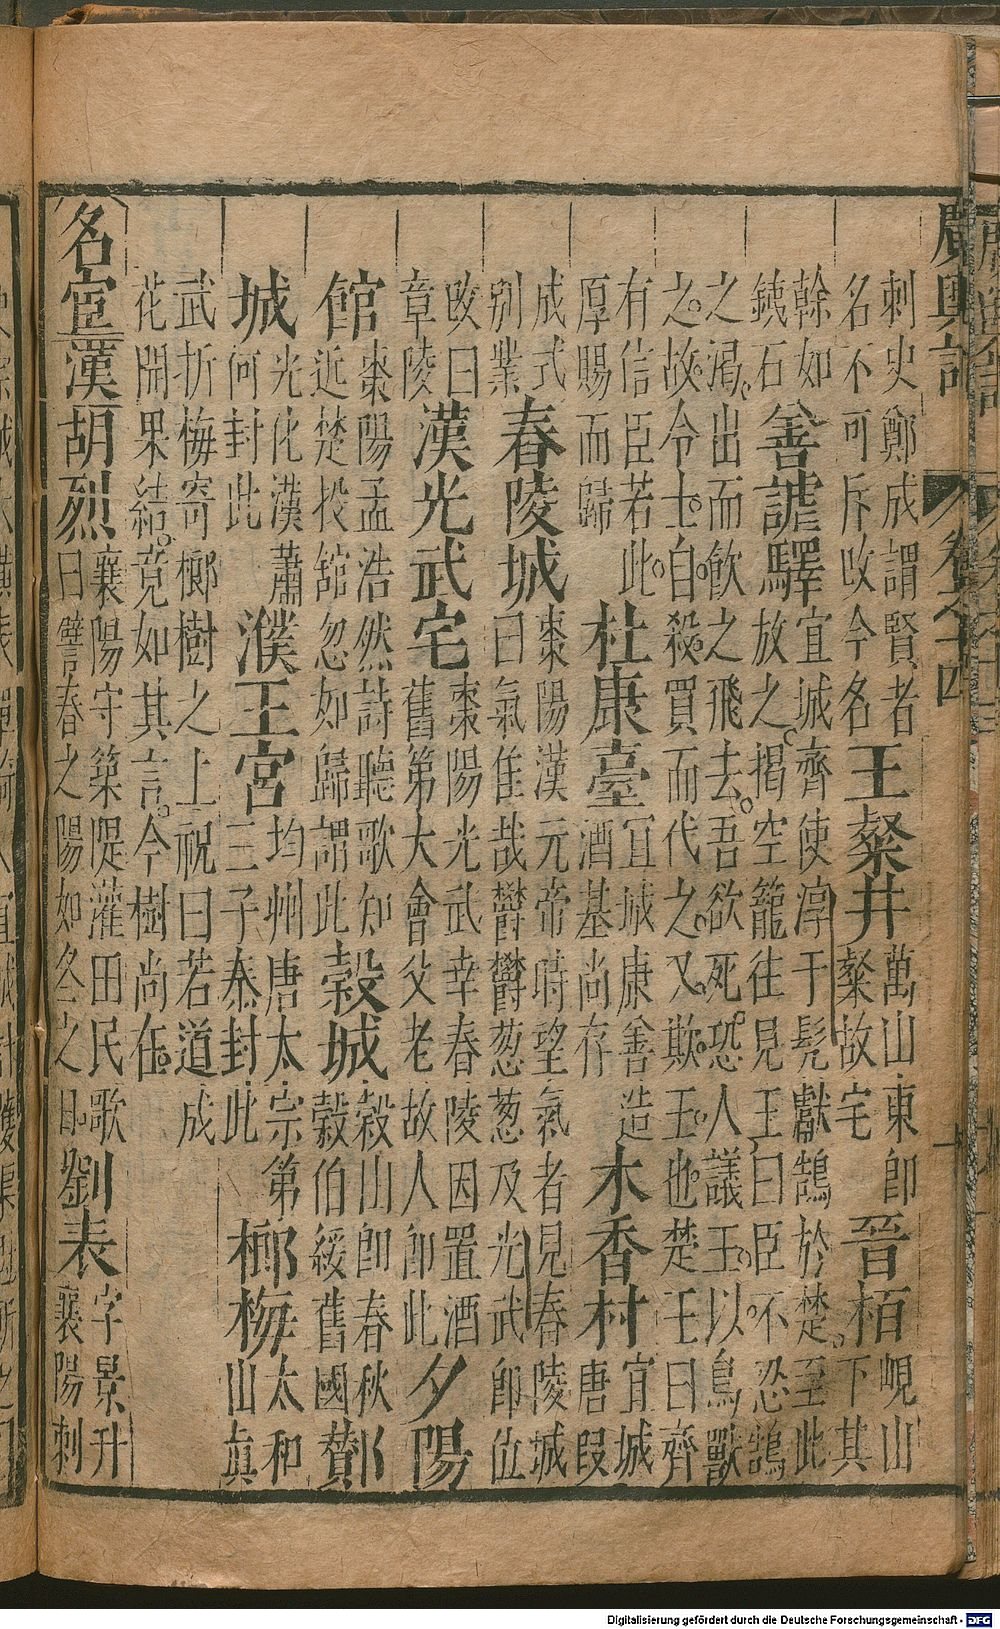 廣輿記 卷之十四 十
刺史鄭成謂賢者
名不可斥攺今名
王粲井
萬山東卽
粲故宅
晉栢
峴山
下其
幹如
鐵石
善謔驛
宜城齊使淳于髡獻鵠於楚至此
放之揭空籠徃見王曰臣不忍鵠
之渴出而飲之飛去吾欲死恐人議王以鳥獸
之故令士自殺買而代之又欺王也楚王曰齊
有信臣若此
厚賜而歸
杜康臺
宜城康善造
酒基尚存
木香村
宜城
唐叚
成式
别業
舂陵城
棗陽漢元帝時望氣者見舂陵城
曰氣佳哉鬱鬱葱葱及光武卽位
攺曰
章陵
漢光武宅
棗陽光武幸舂陵因置酒
舊第大會父老故人卽此
夕陽
館
棗陽孟浩然詩聽歌知
近楚投舘忽如歸謂此
穀城
穀山卽春秋
穀伯綏舊國
酇
城
光化漢蕭
何封此
濮王宮
均州唐太宗第
三子泰封此
榔梅
太和
山眞
武折梅寄榔樹之上祝曰若道成
花開果結竟如其言今樹尚在
名宦
漢胡烈
襄陽守築隄灌田民歌
曰譬春之陽如冬之日
劉表
字景升
襄陽刺
Digitalisierung gefördert durch die Deutsche Forschungsgemeinschaft - DFG